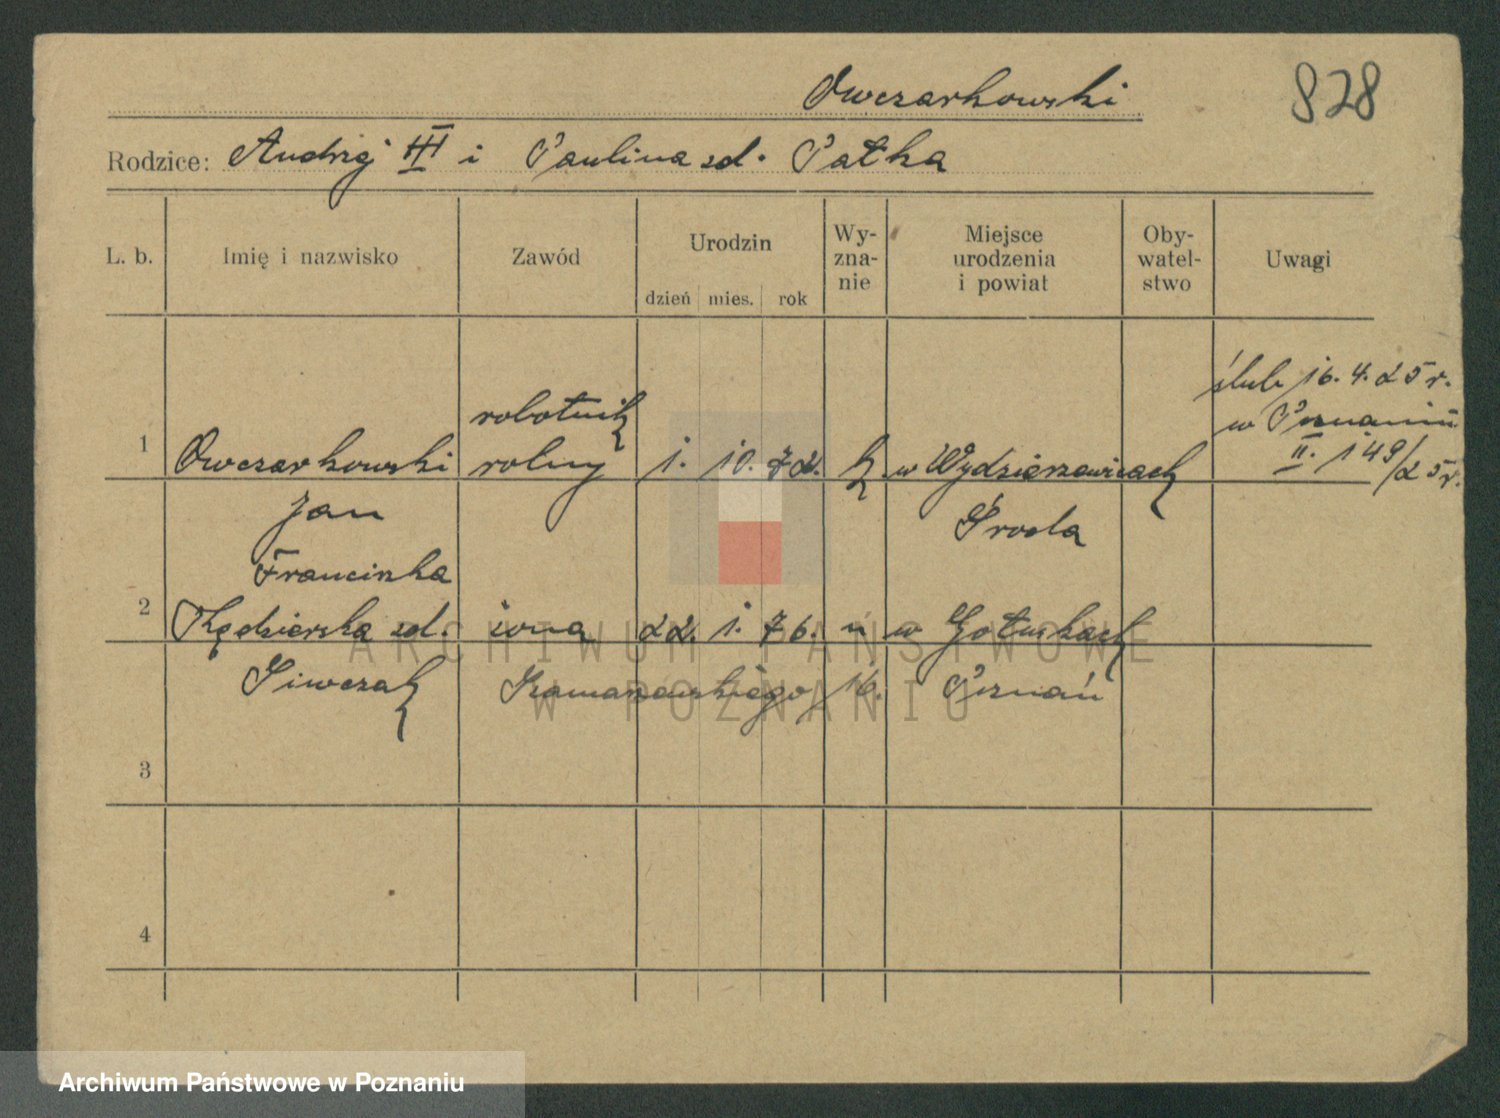 Owczarkowski
828
Rodzice: Andrzej III i Paulina zd. Patka
L. b.
Imię i nazwisko
Zawód
Urodzin
dzień mies. rok
Wy-
zna-
nie
Miejsce
urodzenia
i powiat
Oby-
watel-
stwo
Uwagi
1
Owczarkowski
Jan
robotnik
rolny
1. 10. 72.
k.
w Wydzierzewicach
Środa
ślub 16. 4. 25 r.
w Poznaniu
II. 149/25 r.
2
Franciszka
Kędzierska zd.
Siwczak
żona
22. 1. 76.
"
w Gołuskach
Poznań
16.
3
4
ARCHIWUM PAŃSTWOWE
W POZNANIU
Archiwum Państwowe w Poznaniu